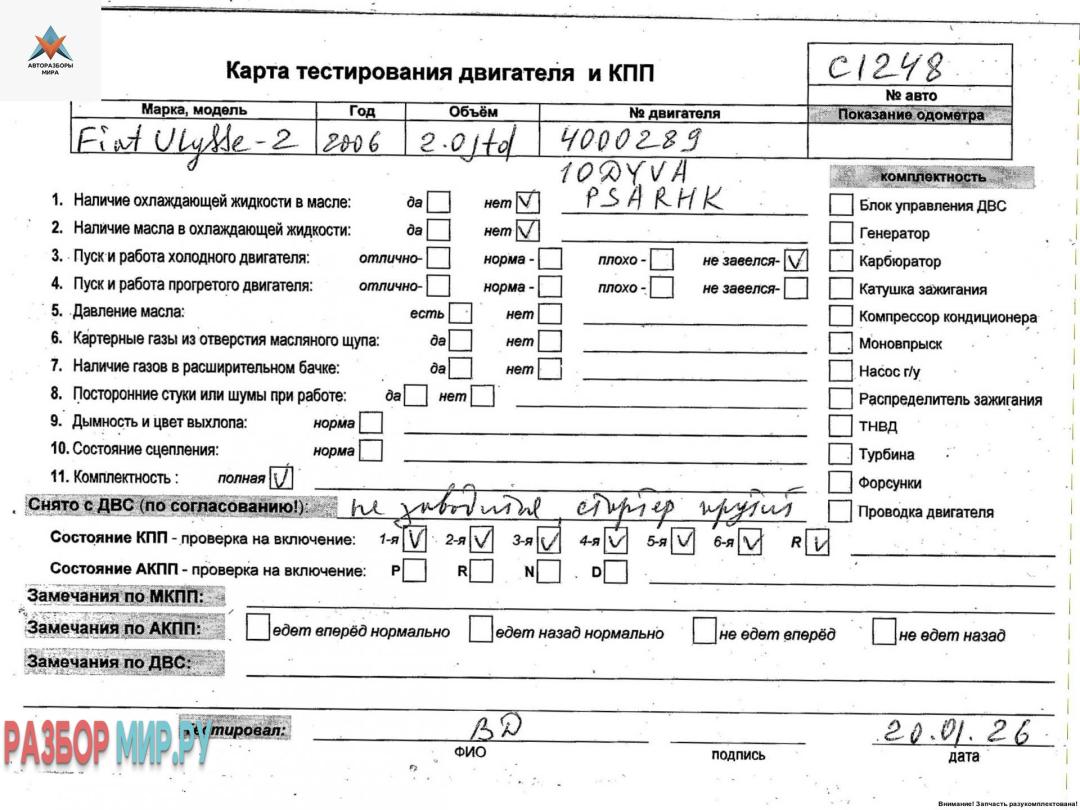 АВТОРАЗБОРЫ
МИРА
Карта тестирования двигателя и КПП
C1248
№ авто
Марка, модель Год Объём № двигателя Показание одометра
Fiat Ulysse-2 2006 2.0jtd 4000289
10DYVA
PSARHK
комплектность
1. Наличие охлаждающей жидкости в масле: да нет
2. Наличие масла в охлаждающей жидкости: да нет
3. Пуск и работа холодного двигателя: отлично- норма - плохо - не завелся-
4. Пуск и работа прогретого двигателя: отлично- норма - плохо - не завелся-
5. Давление масла: есть нет
6. Картерные газы из отверстия масляного щупа: да нет
7. Наличие газов в расширительном бачке: да нет
8. Посторонние стуки или шумы при работе: да нет
9. Дымность и цвет выхлопа: норма
10. Состояние сцепления: норма
11. Комплектность : полная
Блок управления ДВС
Генератор
Карбюратор
Катушка зажигания
Компрессор кондиционера
Моновпрыск
Насос г/у
Распределитель зажигания
ТНВД
Турбина
Форсунки
Проводка двигателя
Снято с ДВС (по согласованию!): не заводится, стартер крутит
Состояние КПП - проверка на включение: 1-я 2-я 3-я 4-я 5-я 6-я R
Состояние АКПП - проверка на включение: P R N D
Замечания по МКПП:
Замечания по АКПП: едет вперёд нормально едет назад нормально не едет вперёд не едет назад
Замечания по ДВС:
РАЗБОРМИР.РУ
тестировал: ВД 20.01.26
ФИО подпись дата
Внимание! Запчасть разукомплектована!